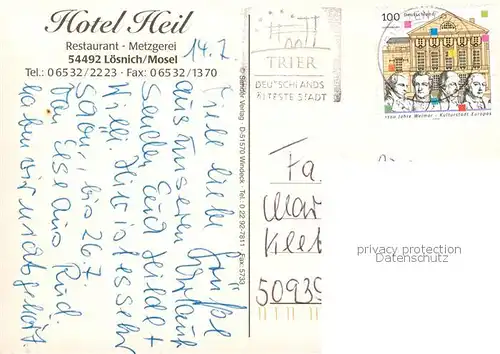 Hotel Heil
Restaurant · Metzgerei
54492 Lösnich/Mosel
Tel.: 0 65 32 / 22 23 · Fax: 0 65 32 / 13 70
14.7.
Viele liebe Grüße
aus unserem Urlaub
senden Euch Hilde +
Willi. Hier ist es sehr
schön, bis 26.7.
von Else aus
haben wir
© Verlag D-51570 Windeck Tel.: 0 22 92-7811 Fax: 5733
TRIER
DEUTSCHLANDS
ÄLTESTE STADT
100
Deutschland
1100 Jahre Weimar - Kulturstadt Europas
Fa.
50939
privacy protection
Datenschutz